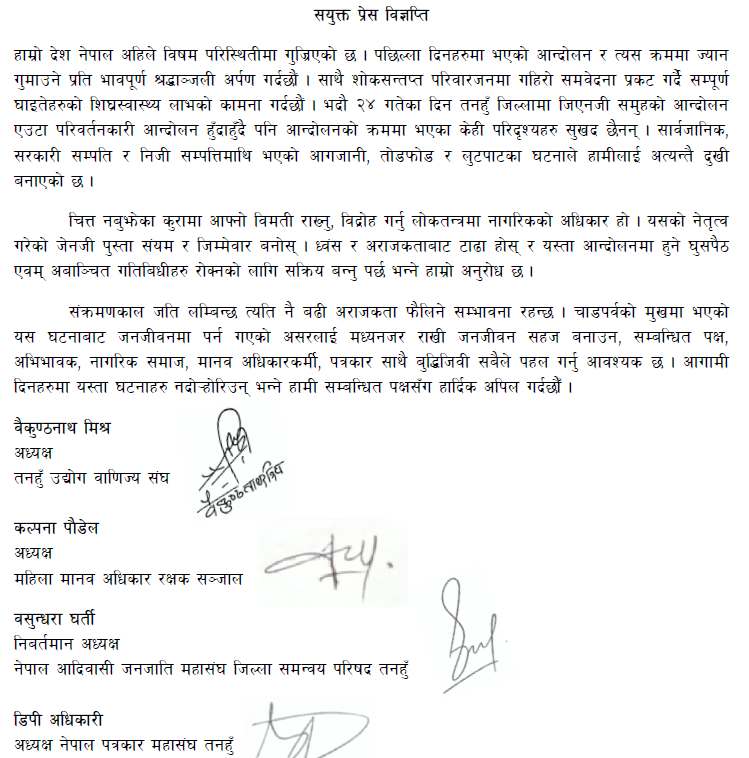 सयुक्त प्रेस विज्ञप्ति
हाम्रो देश नेपाल अहिले विषम परिस्थितीमा गुज्रिएको छ । पछिल्ला दिनहरुमा भएको आन्दोलन र त्यस क्रममा ज्यान
गुमाउने प्रति भावपूर्ण श्रद्धाञ्जली अर्पण गर्दछौं । साथै शोकसन्तप्त परिवारजनमा गहिरो समवेदना प्रकट गर्दै सम्पूर्ण
घाइतेहरुको शिघ्रस्वास्थ्य लाभको कामना गर्दछौं । भदौ २४ गतेका दिन तनहुँ जिल्लामा जिएनजी समुहको आन्दोलन
एउटा परिवर्तनकारी आन्दोलन हुँदाहुँदै पनि आन्दोलनको क्रममा भएका केही परिदृश्यहरु सुखद छैनन् । सार्वजानिक,
सरकारी सम्पति र निजी सम्पत्तिमाथि भएको आगजानी, तोडफोड र लुटपाटका घटनाले हामीलाई अत्यन्तै दुखी
बनाएको छ ।
चित्त नबुझेका कुरामा आफ्नो विमती राख्नु, विद्रोह गर्नु लोकतन्त्रमा नागरिकको अधिकार हो । यसको नेतृत्व
गरेको जेनजी पुस्ता संयम र जिम्मेवार बनोस् । ध्वंस र अराजकताबाट टाढा होस् र यस्ता आन्दोलनमा हुने घुसपैठ
एवम् अबाञ्चित गतिबिधीहरु रोक्नको लागि सक्रिय बन्नु पर्छ भन्ने हाम्रो अनुरोध छ ।
संक्रमणकाल जति लम्बिन्छ त्यति नै बढी अराजकता फैलिने सम्भावना रहन्छ । चाडपर्वको मुखमा भएको
यस घटनाबाट जनजीवनमा पर्न गएको असरलाई मध्यनजर राखी जनजीवन सहज बनाउन, सम्बन्धित पक्ष,
अभिभावक, नागरिक समाज, मानव अधिकारकर्मी, पत्रकार साथै बुद्धिजिवी सबैले पहल गर्नु आवश्यक छ । आगामी
दिनहरुमा यस्ता घटनाहरु नदोऱ्होरिउन् भन्ने हामी सम्बन्धित पक्षसँग हार्दिक अपिल गर्दछौं ।
वैकुण्ठनाथ मिश्र
अध्यक्ष
तनहुँ उद्योग वाणिज्य संघ
कल्पना पौडेल
अध्यक्ष
महिला मानव अधिकार रक्षक सञ्जाल
वसुन्धरा घर्ती
निवर्तमान अध्यक्ष
नेपाल आदिवासी जनजाति महासंघ जिल्ला समन्वय परिषद तनहुँ
डिपी अधिकारी
अध्यक्ष नेपाल पत्रकार महासंघ तनहुँ